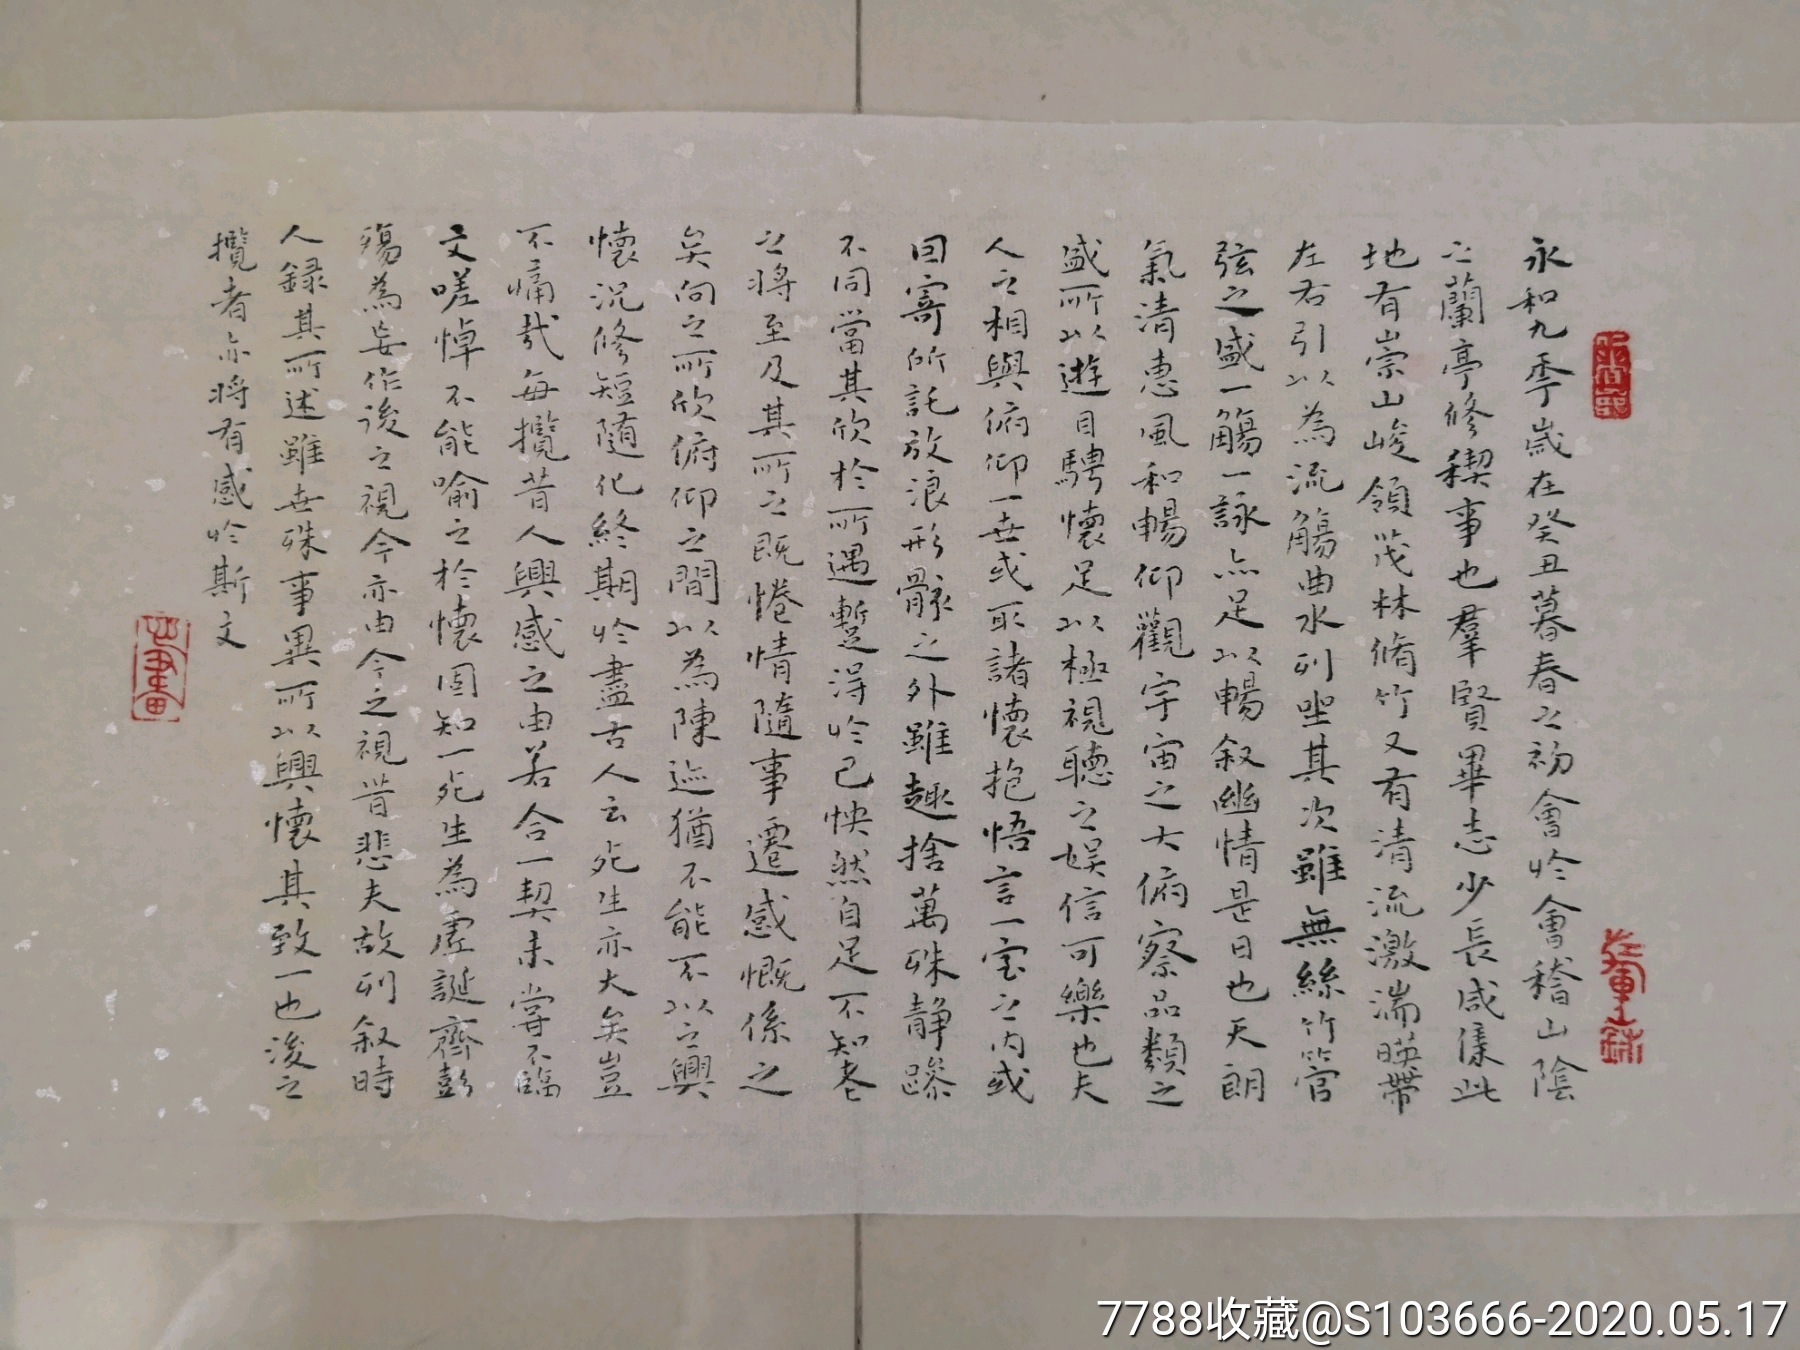 永和九年歲在癸丑暮春之初會於會稽山陰
之蘭亭修稧事也羣賢畢志少長咸集此
地有崇山峻領茂林脩竹又有清流激湍暎帶
左右引以為流觴曲水列坐其次雖無絲竹管
弦之盛一觴一詠亦足以暢叙幽情是日也天朗
氣清惠風和暢仰觀宇宙之大俯察品類之
盛所以遊目騁懷足以極視聽之娱信可樂也夫
人之相與俯仰一世或取諸懷抱悟言一室之内或
因寄所託放浪形骸之外雖趣捨萬殊静躁
不同當其欣於所遇暫得於己怏然自足不知老
之將至及其所之既惓情隨事遷感慨係之
矣向之所欣俯仰之間以為陳迹猶不能不以之興
懷況修短随化終期於盡古人云死生亦大矣豈
不痛哉每攬昔人興感之由若合一契未嘗不臨
文嗟悼不能喻之於懷固知一死生為虚誕齊彭
殤為妄作後之視今亦由今之視昔悲夫故列叙時
人録其所述雖世殊事異所以興懷其致一也後之
攬者亦將有感於斯文
7788收藏@S103666-2020.05.17